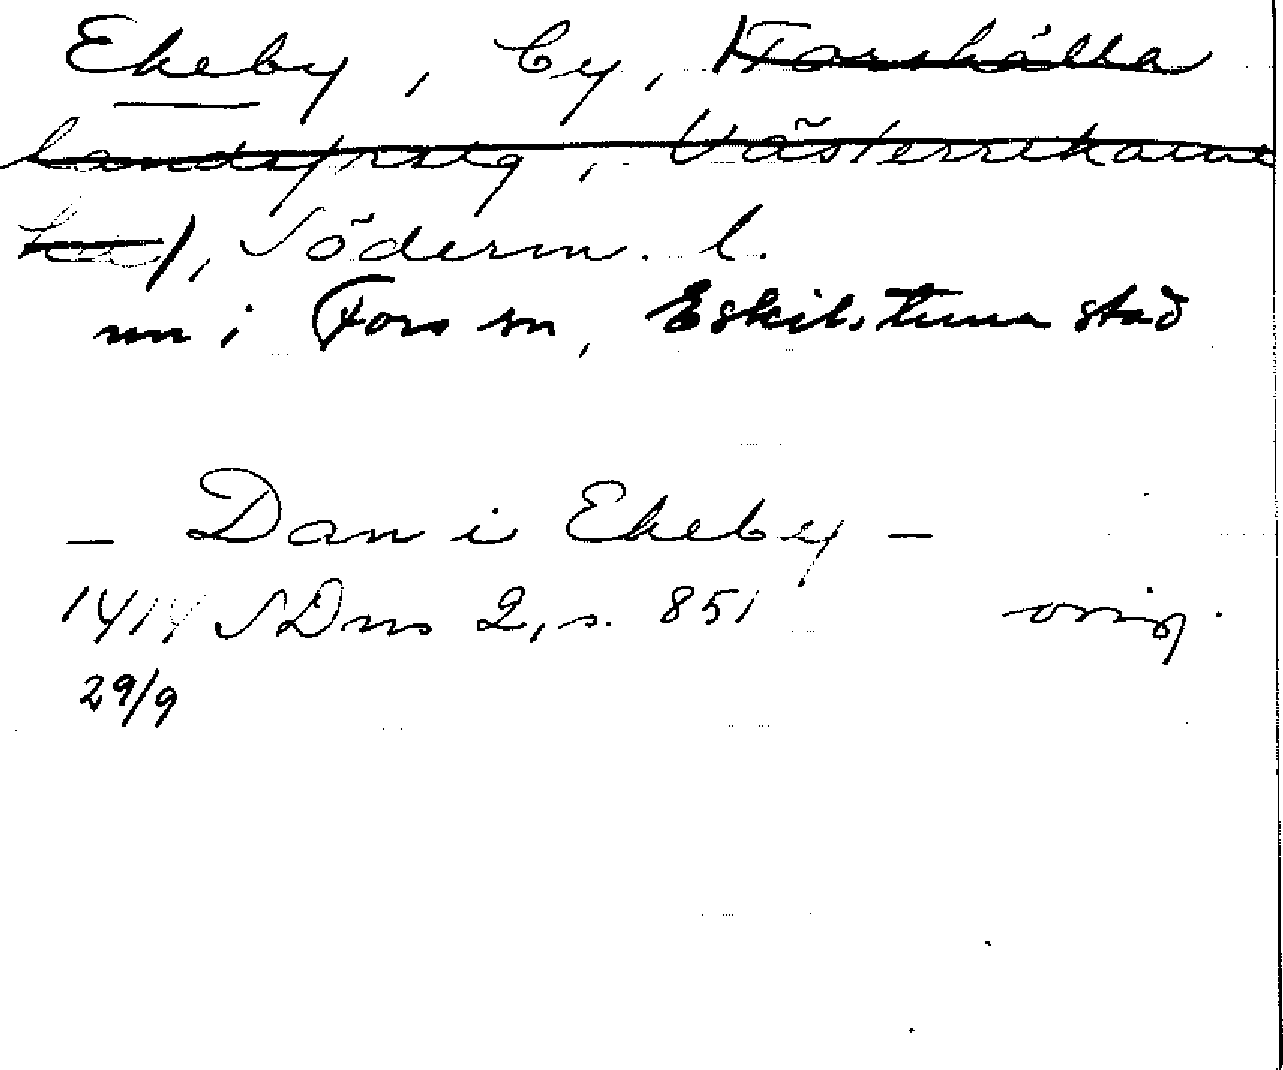 Ekeby, by, Torshälla
landsförs, Västerrekarne
hd, Söderm. l.
nu i Fors sn, Eskilstuna stad
– Dan i Ekeby –
1414 SDns 2, s. 851 orig.
29/9